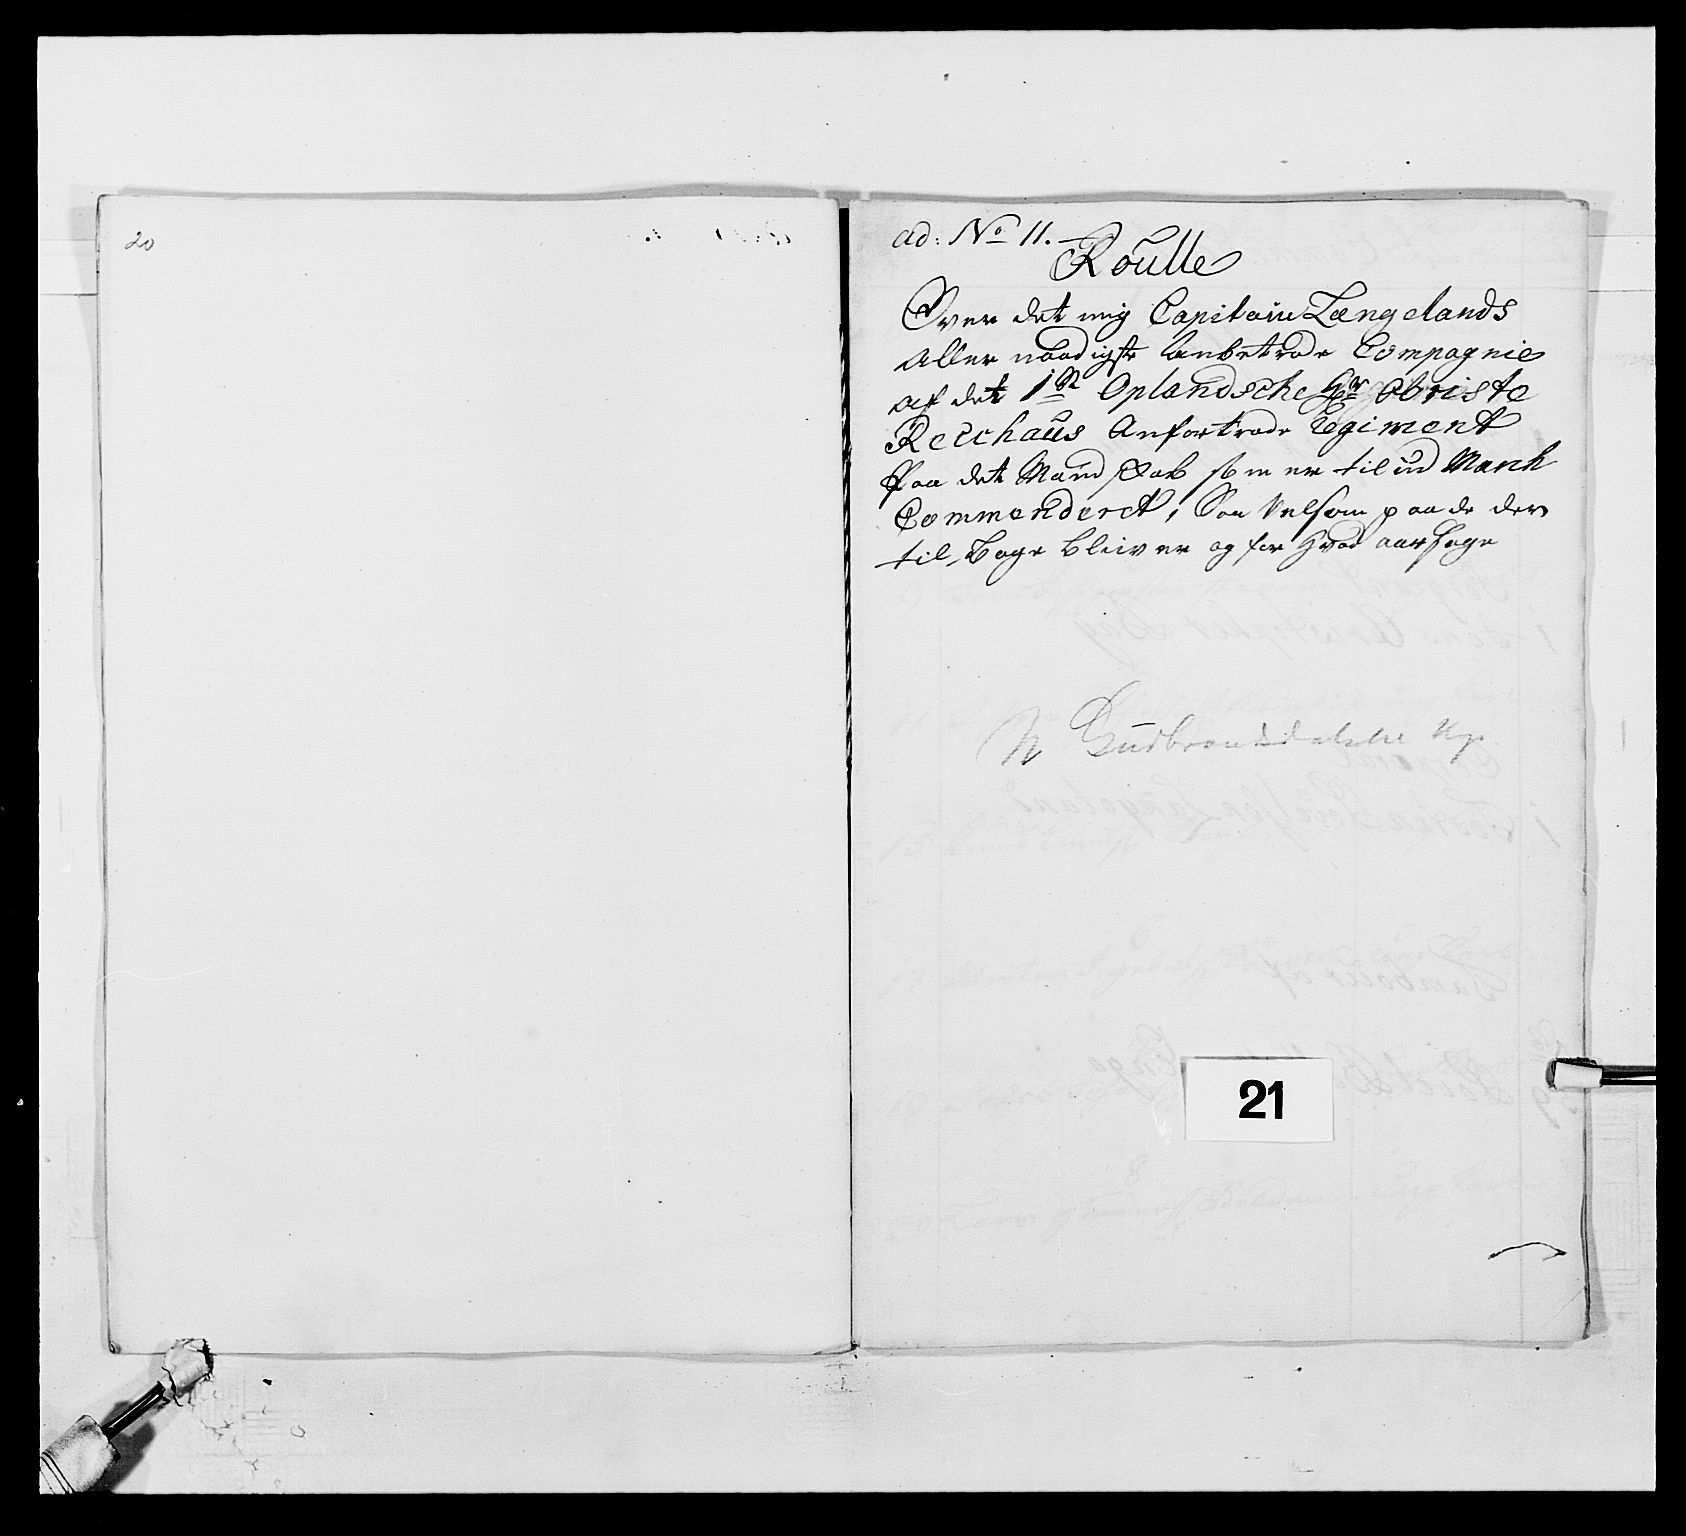 20
ad: No 11.
Roulle
Over det mig Capitain Længelands
Aller naadigste Anbetrode Compagnie
af det 1ste Oplandsche Hr Obriste
Reichaus Anfortrode Regiment
Paa det Mandskab som er til ud March
Commanderet, Saa Velsom paa de der
til Bage bliver og for hvad aarsage
N Gudbrandsdalske Kp.
21